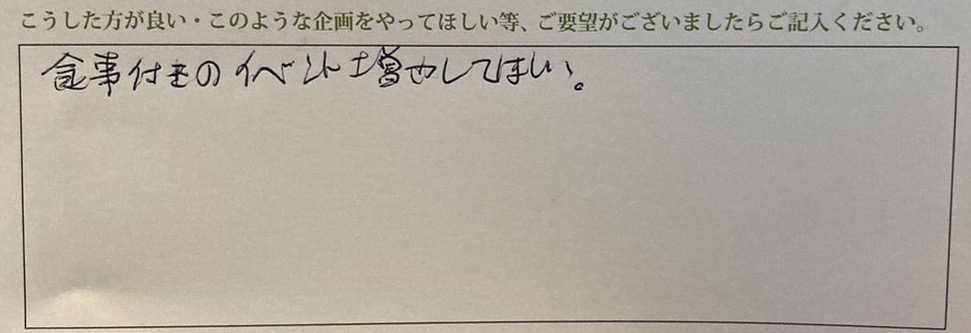 こうした方が良い・このような企画をやってほしい等、ご要望がございましたらご記入ください。
食事付きのイベント増やしてほしい。